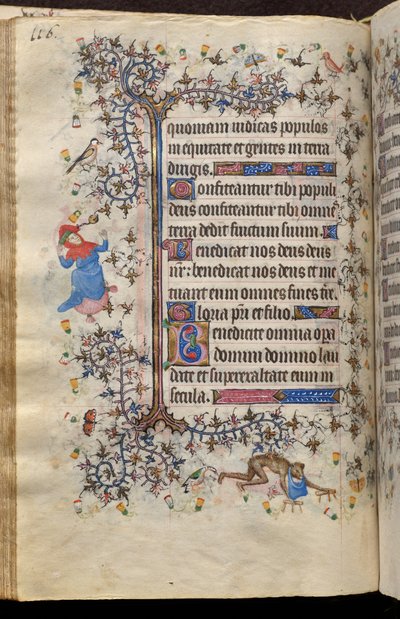 116.
quoniam iudicas populos
in equitate et gentes in terra
dirigis.
Confiteantur tibi populi
deus confiteantur tibi omnes
terra dedit fructum suum.
Benedicat nos deus deus
nr: benedicat nos deus et me
tuant eum omnes fines tre
Gloria pri et filio.
Benedicite omnia opa
domini domino lau
date et superexaltate eum in
secula.